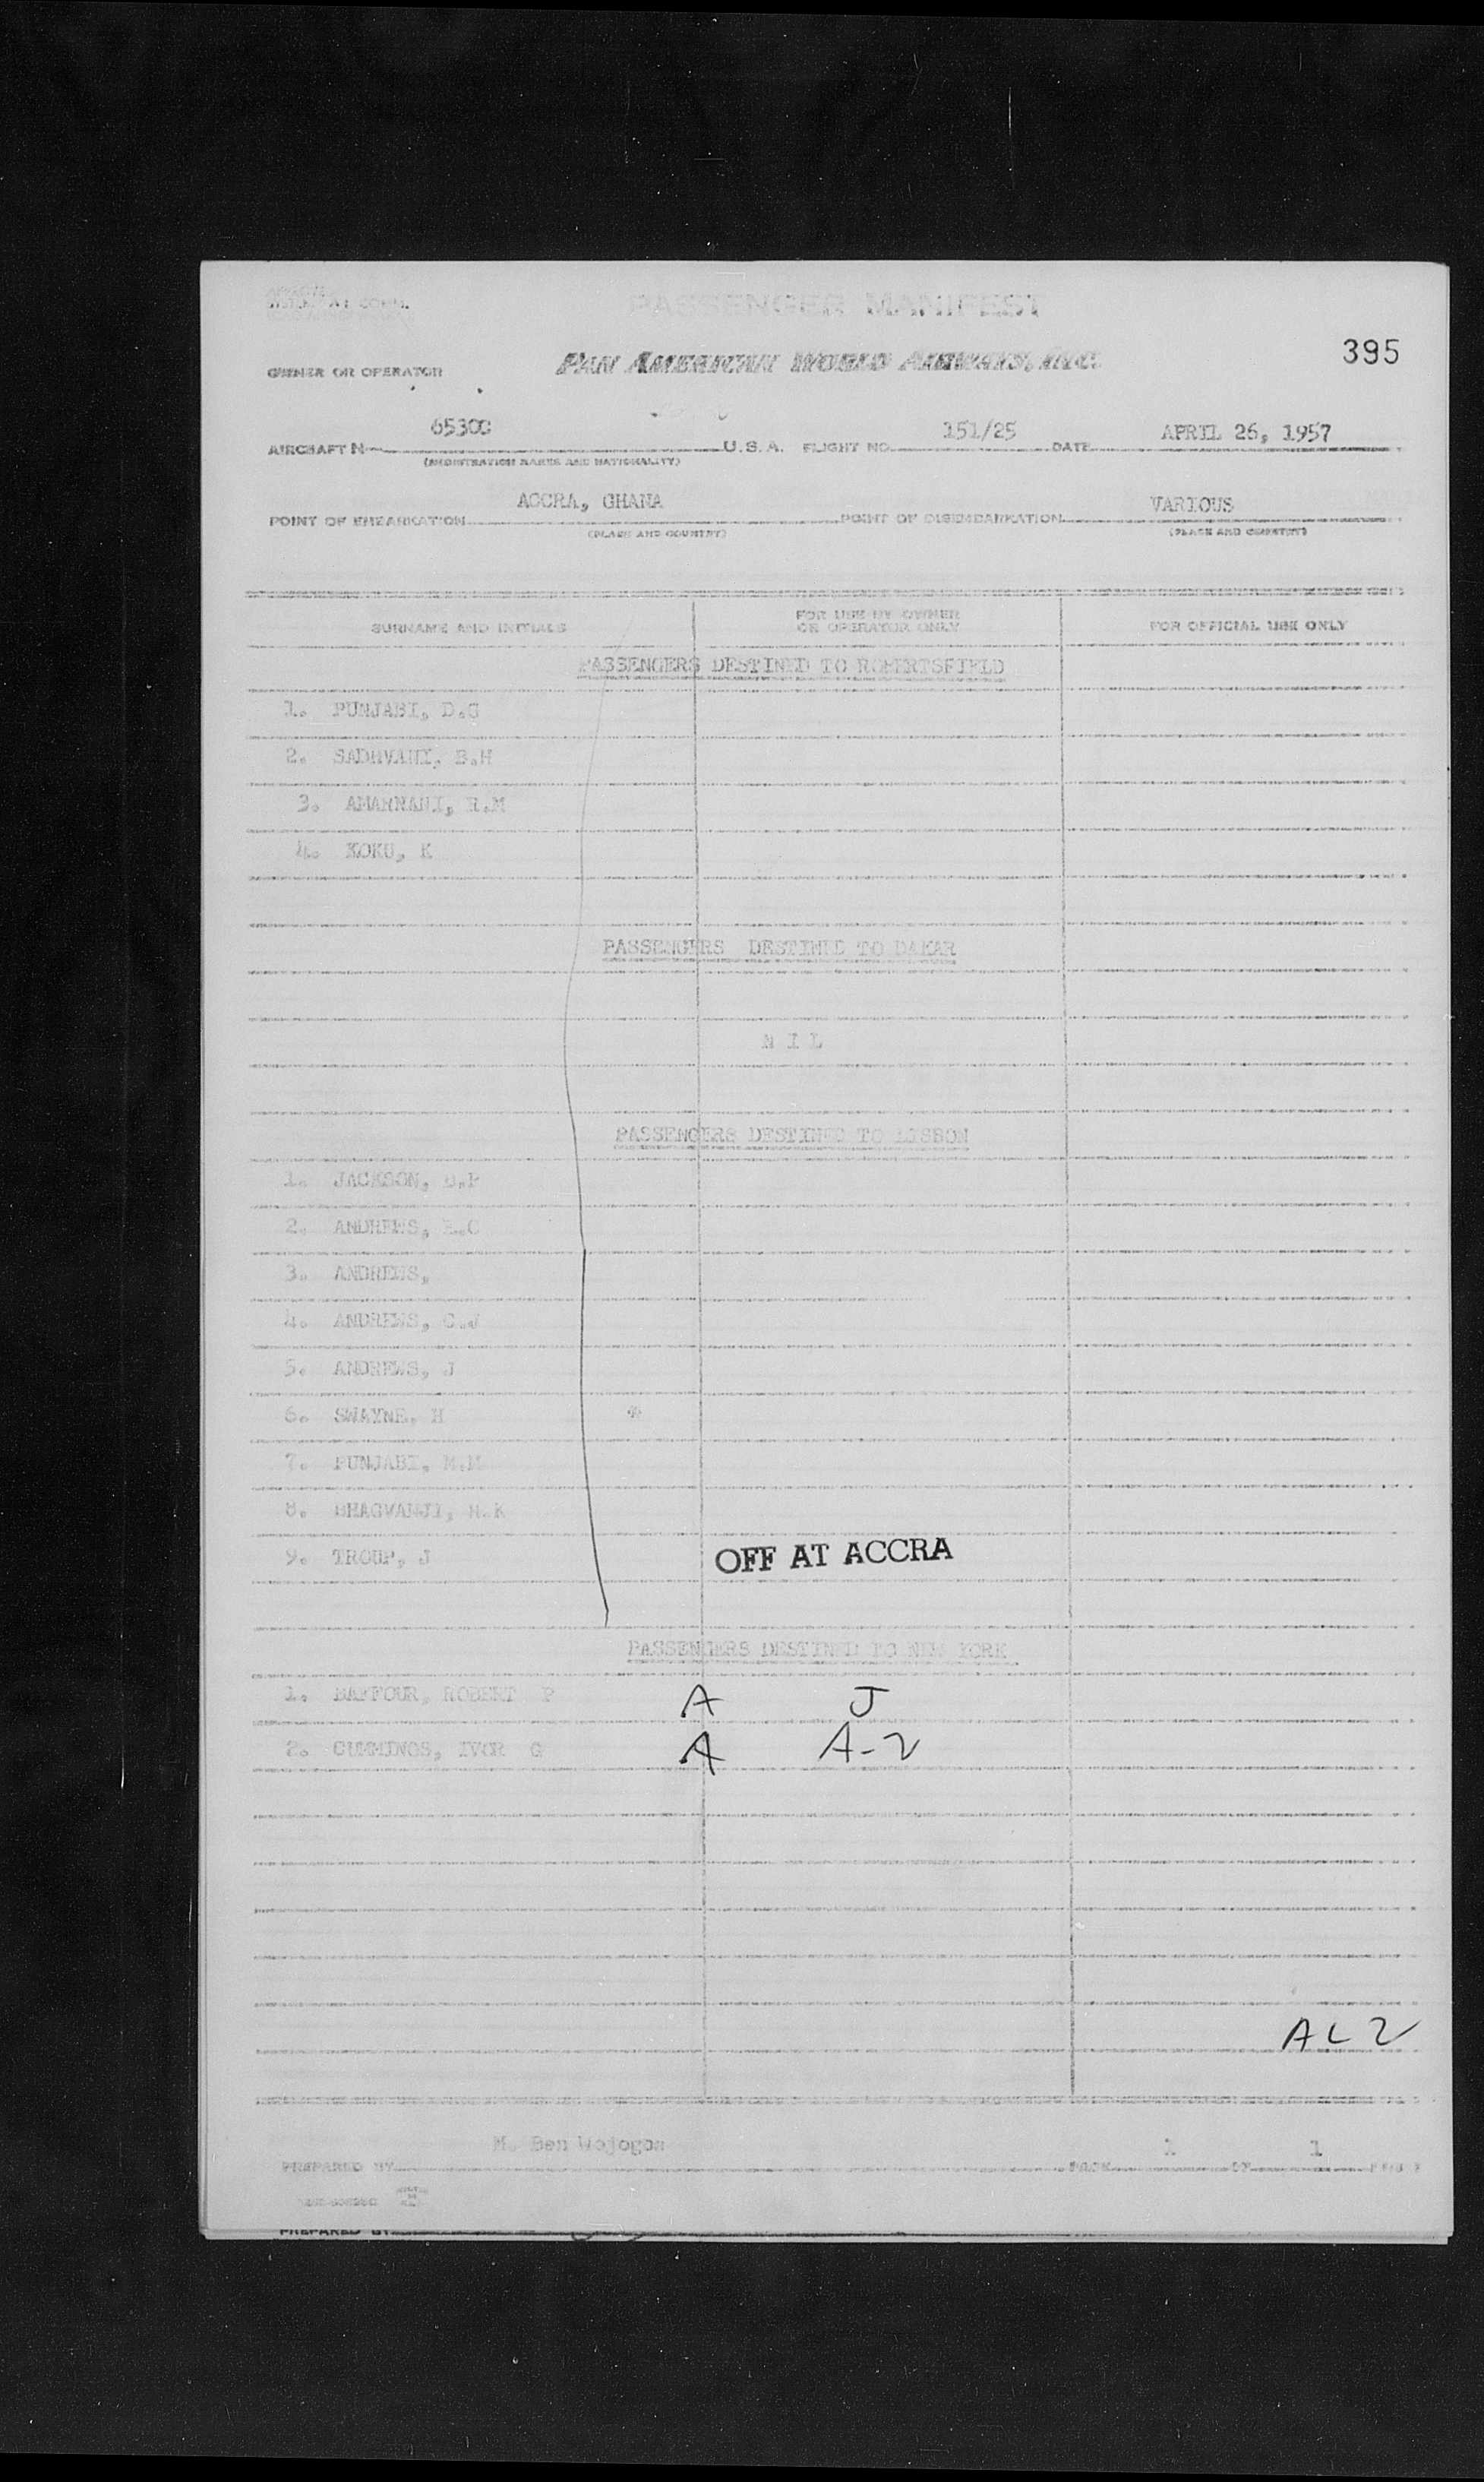 PASSENGER MANIFEST
395
OWNER OR OPERATOR PAN AMERICAN WORLD AIRWAYS, INC.
AIRCRAFT N 65300 U.S.A. FLIGHT NO. 151/25 DATE APRIL 26, 1957
(REGISTRATION MARKS AND NATIONALITY)
POINT OF EMBARKATION ACCRA, GHANA POINT OF DISEMBARKATION VARIOUS
(PLACE AND COUNTRY) (PLACE AND COUNTRY)
SURNAME AND INITIALS FOR USE BY OWNER OR OPERATOR ONLY FOR OFFICIAL USE ONLY
PASSENGERS DESTINED TO ROBERTSFIELD
1. PUNJABI, D.G
2. SADHVANI, B.H
3. AMARNANI, R.M
4. KOKU, K
PASSENGERS DESTINED TO DAKAR
N I L
PASSENGERS DESTINED TO LISBON
1. JACKSON,
2. ANDREWS,
3. ANDREWS,
4. ANDREWS, C.J
5. ANDREWS, J
6. SWAYNE, H *
7. PUNJABI, M.M
8. BHAGVANJI, H.K
9. TROUP, J OFF AT ACCRA
PASSENGERS DESTINED TO NEW YORK
1. BAFFOUR, ROBERT P A J
2. CUMMINGS, IVOR G A A-2
AL 2
PREPARED BY M. Ben Wojogbe PAGE 1 OF 1
PREPARED BY